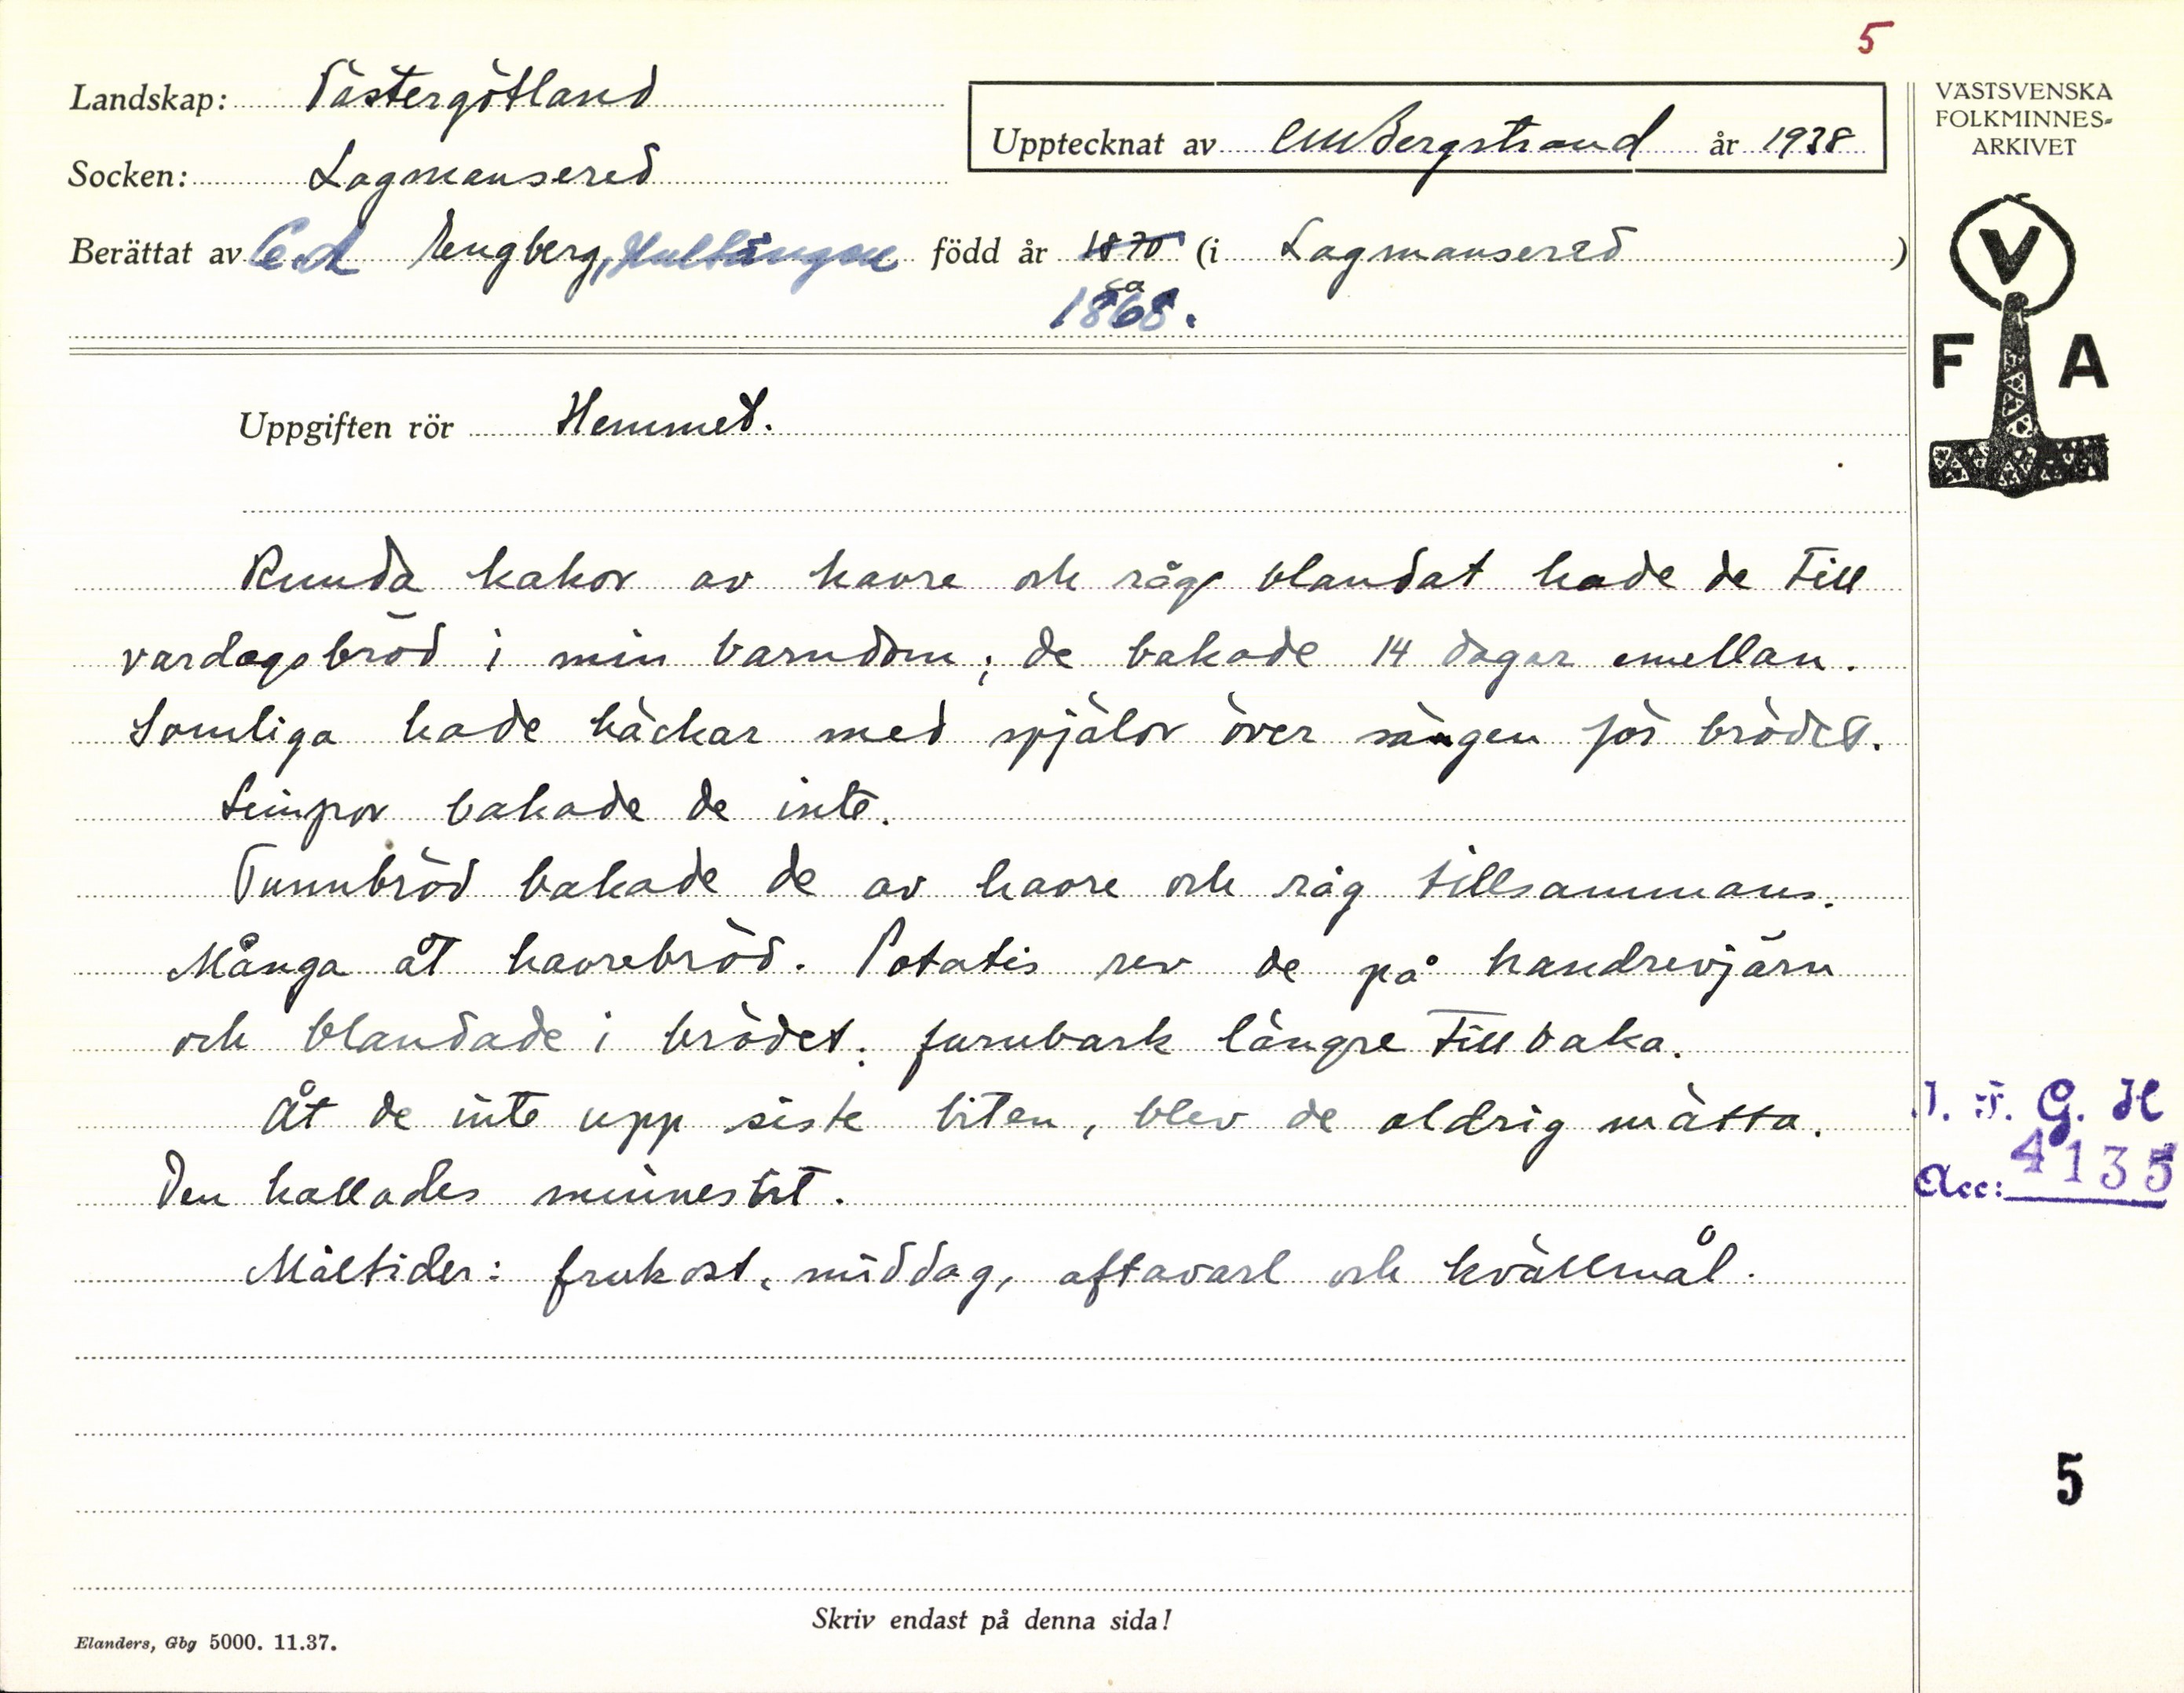 5
Landskap: Västergötland
Upptecknat av CM Bergstrand år 1938
Socken: Lagmansered
Berättat av Engberg, Hultängen född år 1870 (i Lagmansered)
ca
1868.
Uppgiften rör Hemmet.
Runda kakor av havre och råg blandat hade de till
vardagsbröd i min barndom; de bakade 14 dagar emellan.
Somliga hade häckar med spjälor över sängen för brödet.
Limpor bakade de inte.
Tunnbröd bakade de av havre och råg tillsammans.
Många åt havrebröd. Potatis rev de på handrevjärn
och blandade i brödet; furubark längre tillbaka.
Åt de inte upp siste biten, blev de aldrig mätta.
Den kallades minnesbit.
Måltider: frukost, middag, aftavard och kvällmål.
Skriv endast på denna sida!
Elanders, Gbg 5000. 11.37.
VÄSTSVENSKA
FOLKMINNES-
ARKIVET
V
F A
I. F. G. H
Acc: 4135
5